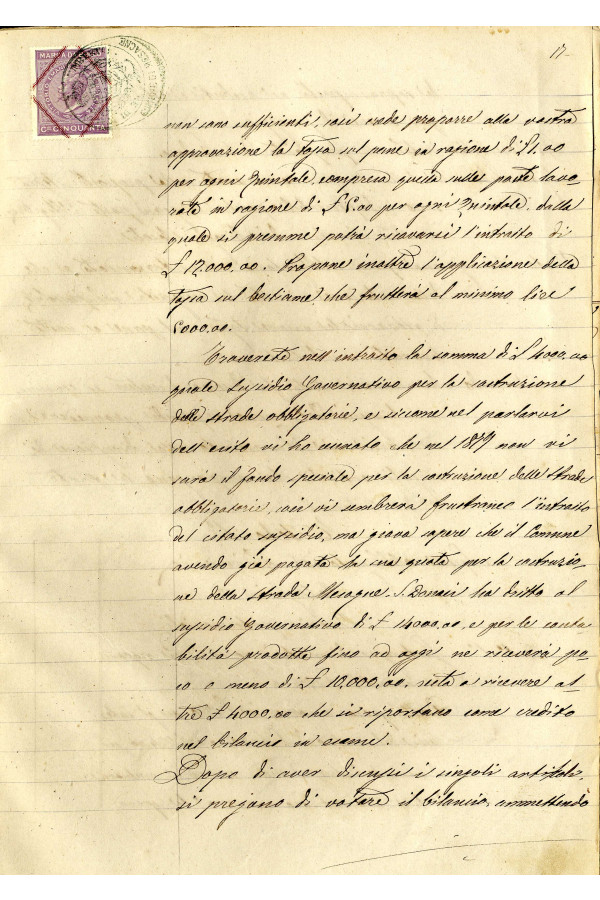 17
MARCA DA
C.i CINQUANTA
MESAGNE
non sono sufficienti, così crede proporre alla vostra
approvazione la tassa sul pane in ragione di £ 1.00
per ogni Quintale, compresa quella sulle paste lavo-
rate in ragione di £ 1.00 per ogni Quintale, dalla
quale si presume potrà ricavarsi l'introito di
£ 12.000,00. Propone inoltre l'applicazione della
tassa sul bestiame, che frutterà al minimo lire
1000.00.
Troverete nell'introito la somma di £ 4000,00
quale Sussidio Governativo per la costruzione
delle strade obbligatorie, e siccome nel parlarvi
dell'esito vi ho cennato che nel 1879 non vi
sarà il fondo speciale per la costruzione delle Strade
obbligatorie, così vi sembrerà frustraneo l'introito
del citato sussidio, ma giova sapere che il Comune
avendo già pagata la sua quota per la costruzio-
ne della strada Mesagne-S. Donaci ha dritto al
sussidio Governativo di £ 14000,00, e per le conta
bilità prodotte fino ad oggi ne riceverà po-
co o meno di £ 10,000,00. resta a ricevere al-
tre £ 4000,00 che si riportano come credito
nel bilancio in esame.
Dopo di aver discussi i singoli articoli,
si pregano di votare il bilancio, ammettendo